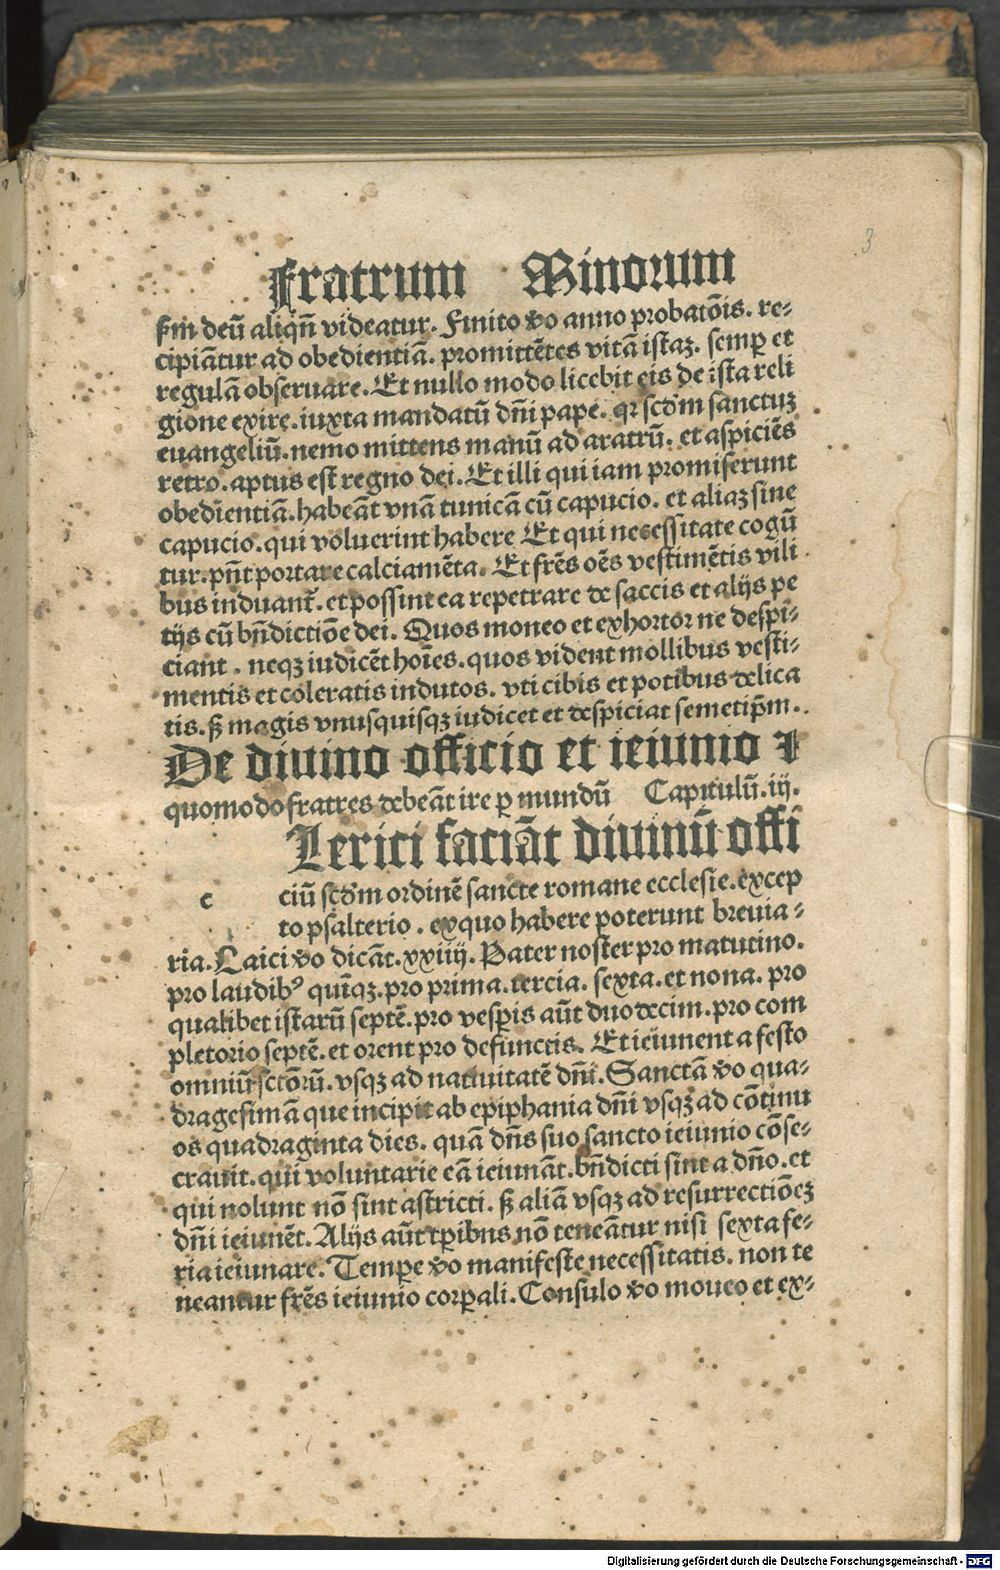 3
Fratrum Minorum
sm̄ deū aliqn̄ videatur. Finito v̊o anno probatōis. re-
cipiātur ad obedientiā. promittētes vitā istaꝫ. semꝑ et
regulā obseruare. Et nullo modo licebit eis de ista reli
gione exire. iuxta mandatū dn̄i pape. qꝛ scd̓m sanctuꝫ
euangeliū. nemo mittens manū ad aratrū. et aspiciēs
retro. aptus est regno dei. Et illi qui iam promiserunt
obedientiā. habeāt vnā tunicā cū capucio. et aliaꝫ sine
capucio. qui voluerint habere Et qui necessitate cogū
tur. pn̄t portare calciamēta. Et frēs oēs vestimētis vili
bus induant᷑. et possint ea repetrare de saccis et alijs pe
tijs cū bn̄dictiōe dei. Quos moneo et exhortor ne despi-
ciant. neqꝫ iudicēt hoīes. quos vident mollibus vesti-
mentis et coleratis indutos. vti cibis et potibus delica
tis. sꝫ magis vnusquisqꝫ iudicet et despiciat semetip̄m.
De diuino officio et ieiunio ⁊
quomodo fratres debeāt ire ꝑ mundū Capitulū. iij.
Lerici faciāt diuinū offi
c ciū scd̓m ordinē sancte romane ecclesie. excep
to psalterio. exquo habere poterunt breuia-
ria. Laici v̊o dicāt. xxiiij. Pater noster pro matutino.
pro laudibꝰ quīqꝫ. pro prima. tercia. sexta. et nona. pro
qualibet istarū septē. pro vesꝑis aūt duodecim. pro com
pletorio septē. et orent pro defunctis. Et ieiunent a festo
omniū sctōrū. vsqꝫ ad natiuitatē dn̄i. Sanctā v̊o qua-
dragesimā que incipit ab epiphania dn̄i vsqꝫ ad cōtinu
os quadraginta dies. quā dn̄s suo sancto ieiunio cōse-
crauit. qui voluntarie eā ieiunāt. bn̄dicti sint a dn̄o. et
qui nolunt nō sint astricti. sꝫ aliā vsqꝫ ad resurrectiōeꝫ
dn̄i ieiunēt. Alijs aūt tꝑibns nō teneātur nisi sexta fe-
ria ieiunare. Temꝑe v̊o manifeste necessitatis. non te
neantur frēs ieiunio corꝑali. Consulo v̊o moueo et ex-
Digitalisierung gefördert durch die Deutsche Forschungsgemeinschaft - DFG